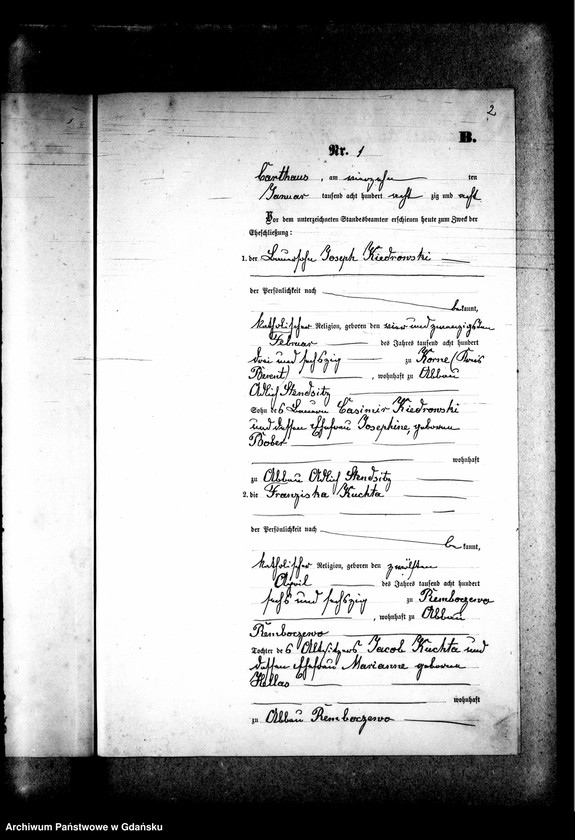 2
B.
Nr. 1
Carthaus, am vierzehn ten
Januar tausend acht hundert acht zig und acht
Vor dem unterzeichneten Standesbeamten erschienen heute zum Zweck der
Eheschließung:
1. der Bauersohn Joseph Kiedrowski
der Persönlichkeit nach
bekannt,
katholischer Religion, geboren den vier und zwanzigsten
Februar des Jahres tausend acht hundert
drei und sechszig zu Korne (Kreis
Berent), wohnhaft zu Abbau
Adlig Stendsitz
Sohn des Bauern Casimir Kiedrowski
und dessen Ehefrau Josephine, geborenen
Bober
wohnhaft
zu Abbau Adlig Stendsitz
2. die Franziska Kuchta
der Persönlichkeit nach
be kannt,
katholischer Religion, geboren den zwölften
April des Jahres tausend acht hundert
sechs und sechszig zu Remboczewo
, wohnhaft zu Abbau
Remboczewo
Tochter des Altsitzers Jacob Kuchta und
dessen Ehefrau Marianne geborenen
Hellas
wohnhaft
zu Abbau Remboczewo
Archiwum Państwowe w Gdańsku